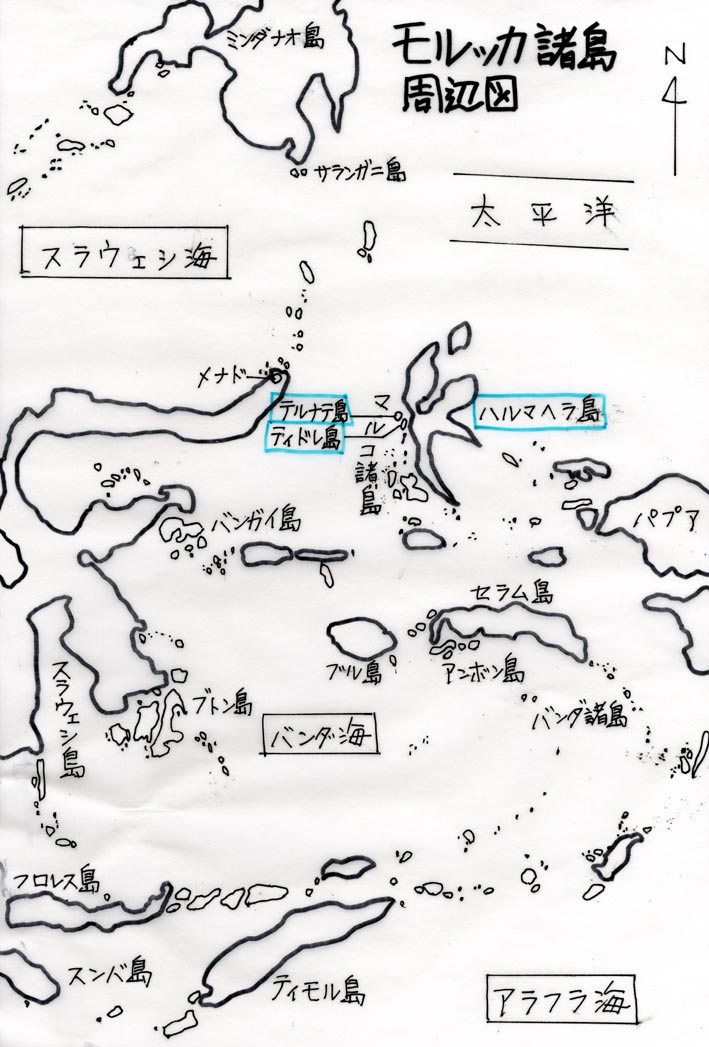 ミンダナオ島
モルッカ諸島
周辺図
N
サランガニ島
太平洋
スラウェシ海
メナド
テルナテ島
ティドレ島
マルコ諸島
ハルマヘラ島
バンガイ島
パプア
セラム島
ブル島
アンボン島
スラウェシ島
ブトン島
バンダ海
バンダ諸島
フロレス島
スンバ島
ティモル島
アラフラ海